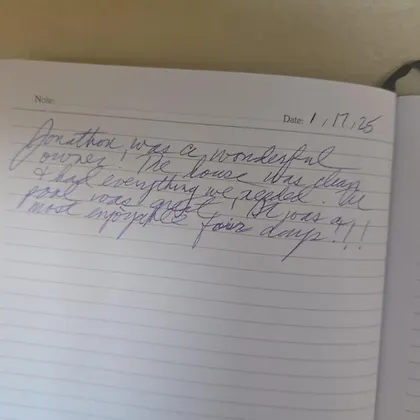 Note:
Date: 1, 17, 25
Jonathon, was a wonderful
owner. The house was clean
& had everything we needed. The
pool was great. It was a
most enjoyable four days!!!